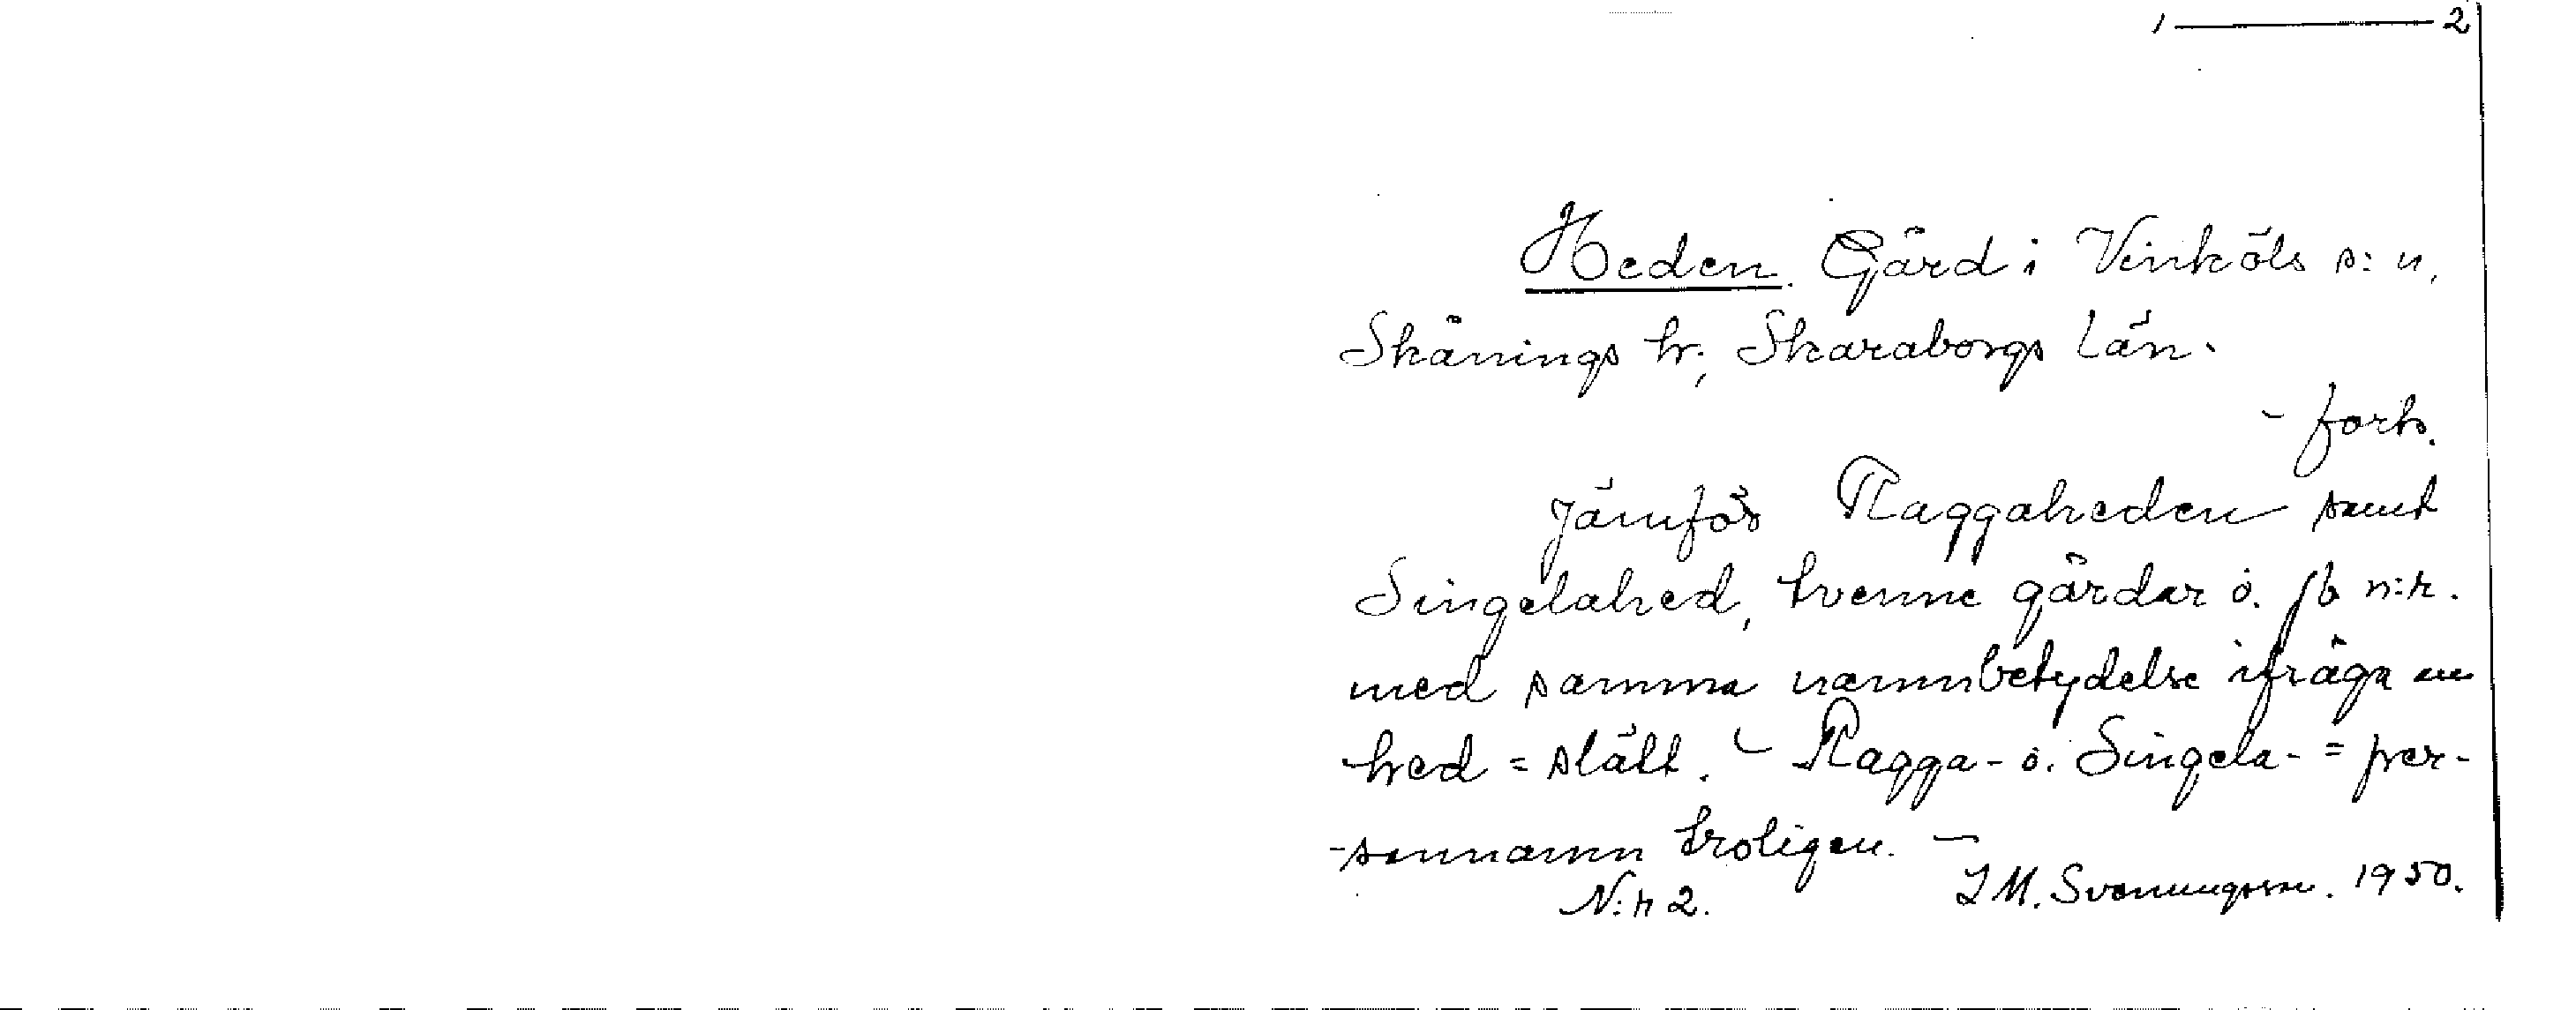 1 — 2
Heden. Gård i Vinköls s:n,
Skånings hr., Skaraborgs län.
- forts.
Jämför Raggaheden samt
Singelahed, tvenne gårdar o. n:r.
med samma namnbetydelse ifråga om
hed = slätt. - Ragga- o. Singela- = per-
-sonnamn troligen. -
N:r 2. I M. Svenungsson. 1950.